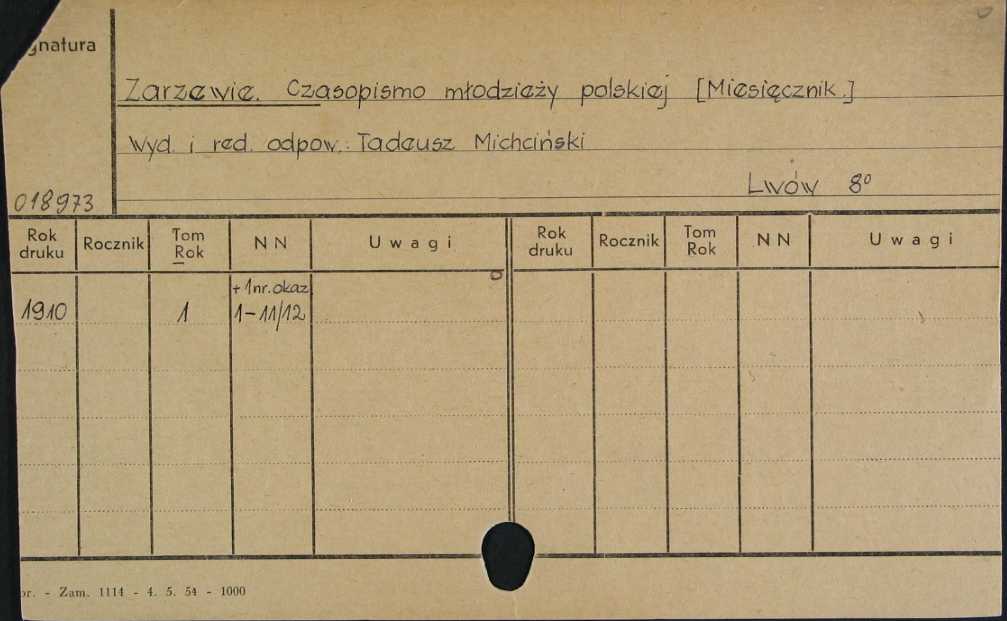 gnatura
Zarzewie. Czasopismo młodzieży polskiej [Miesięcznik.]
Wyd. i red. odpow.: Tadeusz Michciński
Lwów 8º
018973
Rok druku Rocznik Tom Rok NN Uwagi Rok druku Rocznik Tom Rok NN Uwagi
+ 1 nr. okaz
1910 1 1-11/12
or. - Zam. 1114 - 4. 5. 54 - 1000